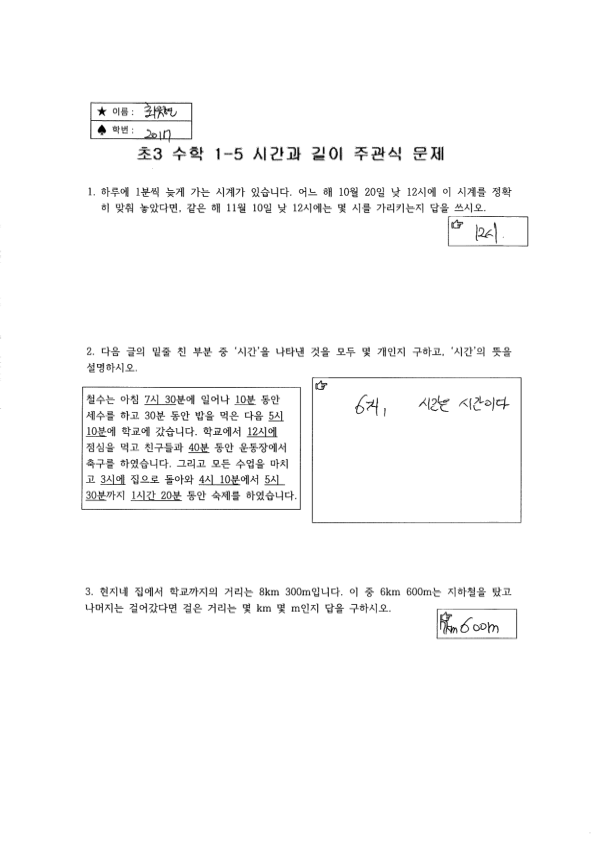 ★ 이름 :
♠ 학번 : 2017
초3 수학 1-5 시간과 길이 주관식 문제
1. 하루에 1분씩 늦게 가는 시계가 있습니다. 어느 해 10월 20일 낮 12시에 이 시계를 정확
히 맞춰 놓았다면, 같은 해 11월 10일 낮 12시에는 몇 시를 가리키는지 답을 쓰시오.
☞ 12시.
2. 다음 글의 밑줄 친 부분 중 '시간'을 나타낸 것을 모두 몇 개인지 구하고, '시간'의 뜻을
설명하시오.
철수는 아침 7시 30분에 일어나 10분 동안
세수를 하고 30분 동안 밥을 먹은 다음 5시
10분에 학교에 갔습니다. 학교에서 12시에
점심을 먹고 친구들과 40분 동안 운동장에서
축구를 하였습니다. 그리고 모든 수업을 마치
고 3시에 집으로 돌아와 4시 10분에서 5시
30분까지 1시간 20분 동안 숙제를 하였습니다.
☞
6개, 시간은 시간이다
3. 현지네 집에서 학교까지의 거리는 8km 300m입니다. 이 중 6km 600m는 지하철을 탔고
나머지는 걸어갔다면 걸은 거리는 몇 km 몇 m인지 답을 구하시오.
☞ km 600m